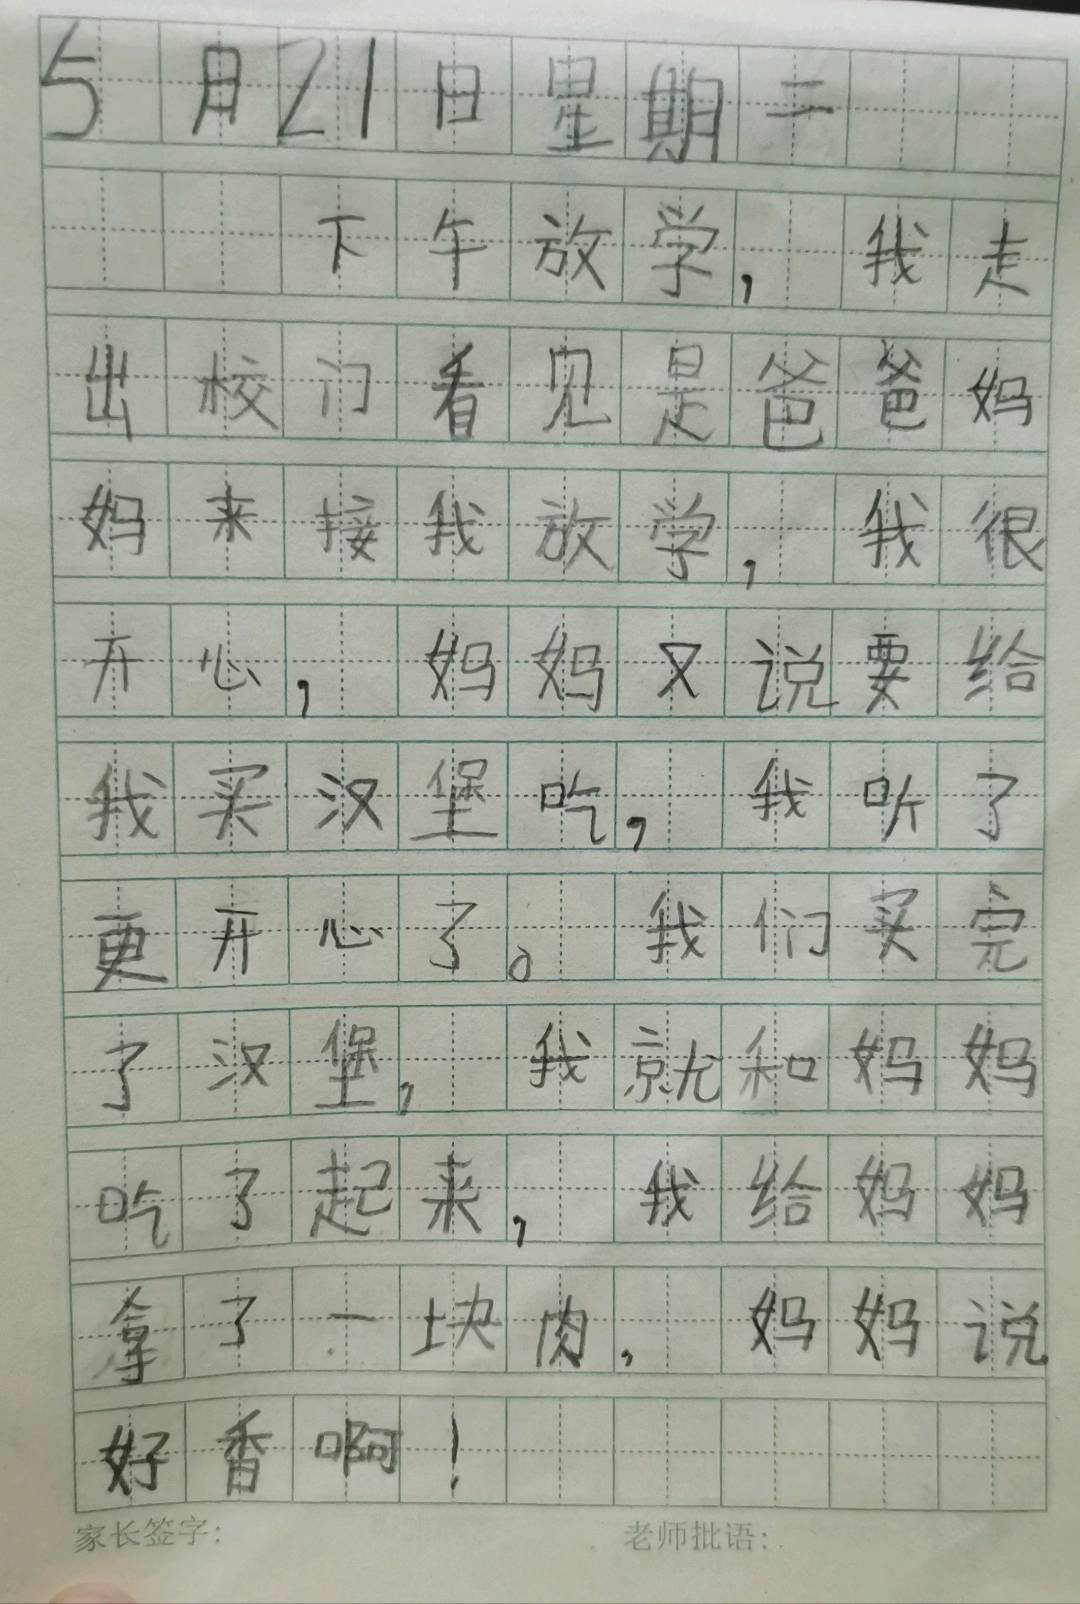 5月21日星期二
下午放学，我走
出校门看见是爸爸妈
妈来接我放学，我很
开心，妈妈又说要给
我买汉堡吃，我听了
更开心了。我们买完
了汉堡，我就和妈妈
吃了起来，我给妈妈
拿了一块肉，妈妈说
好香啊！
家长签字: 老师批语: